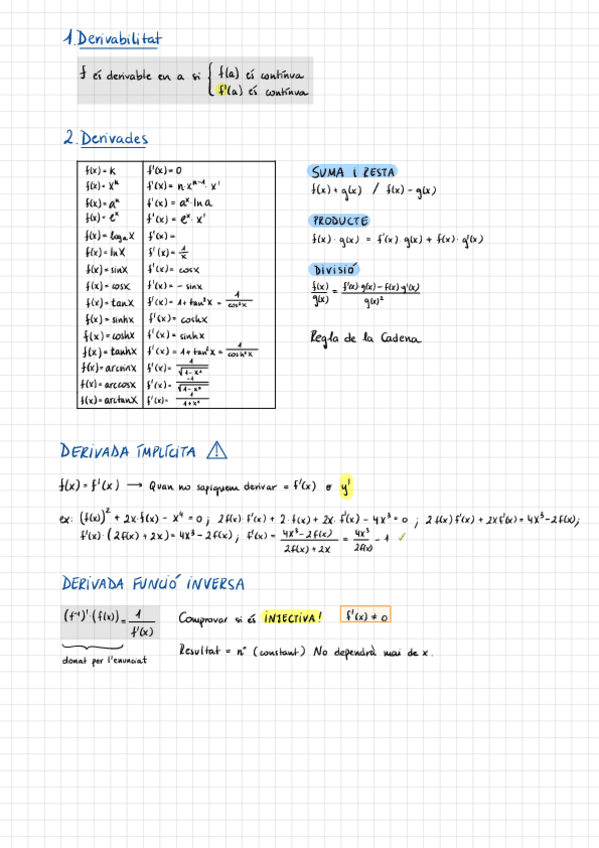 1. Derivabilitat
f és derivable en a si { f(a) és contínua
f'(a) és contínua
2. Derivades
f(x) = k f'(x) = 0
f(x) = xⁿ f'(x) = n·xⁿ⁻¹·x'
f(x) = aˣ f'(x) = aˣ·ln a
f(x) = eˣ f'(x) = eˣ·x'
f(x) = logₐx f'(x) =
f(x) = lnx f'(x) = 1/x
f(x) = sinx f'(x) = cosx
f(x) = cosx f'(x) = - sinx
f(x) = tanx f'(x) = 1 + tan²x = 1/cos²x
f(x) = sinhx f'(x) = coshx
f(x) = coshx f'(x) = sinhx
f(x) = tanhx f'(x) = 1 + tan²x = 1/cosh²x
f(x) = arcsinx f'(x) = 1/√(1-x²)
f(x) = arccosx f'(x) = -1/√(1-x²)
f(x) = arctanx f'(x) = 1/1+x²
SUMA I RESTA
f(x) + g(x) / f(x) - g(x)
PRODUCTE
f(x)·g(x) = f'(x)·g(x) + f(x)·g'(x)
DIVISIÓ
f(x)/g(x) = f'(x)·g(x) - f(x)·g'(x)/g(x)²
Regla de la Cadena
DERIVADA IMPLÍCITA ⚠
f(x) = f'(x) → Quan no sapiguem derivar = f'(x) o y'
ex: (f(x))² + 2x·f(x) - x⁴ = 0 ; 2f(x)·f'(x) + 2·f(x) + 2x·f'(x) - 4x³ = 0 ; 2f(x)f'(x) + 2xf'(x) = 4x³ - 2f(x);
f'(x)·(2f(x) + 2x) = 4x³ - 2f(x) ; f'(x) = 4x³ - 2f(x)/2f(x) + 2x = 4x³/2f(x) - 1 ✓
DERIVADA FUNCIÓ INVERSA
(f⁻¹)'·(f(x)) = 1/f'(x) Comprovar si és INJECTIVA! f'(x) ≠ 0
donat per l'enunciat Resultat = nº (constant) No dependrà mai de x.